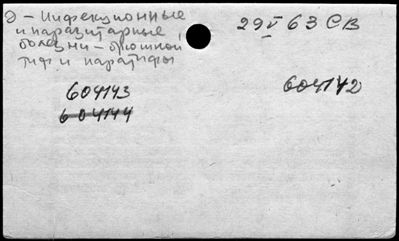 Э - Инфекционные
и паразитарные
болезни - брюшной
тиф и паратифы
29 V 63 СВ
604143
604144
604142